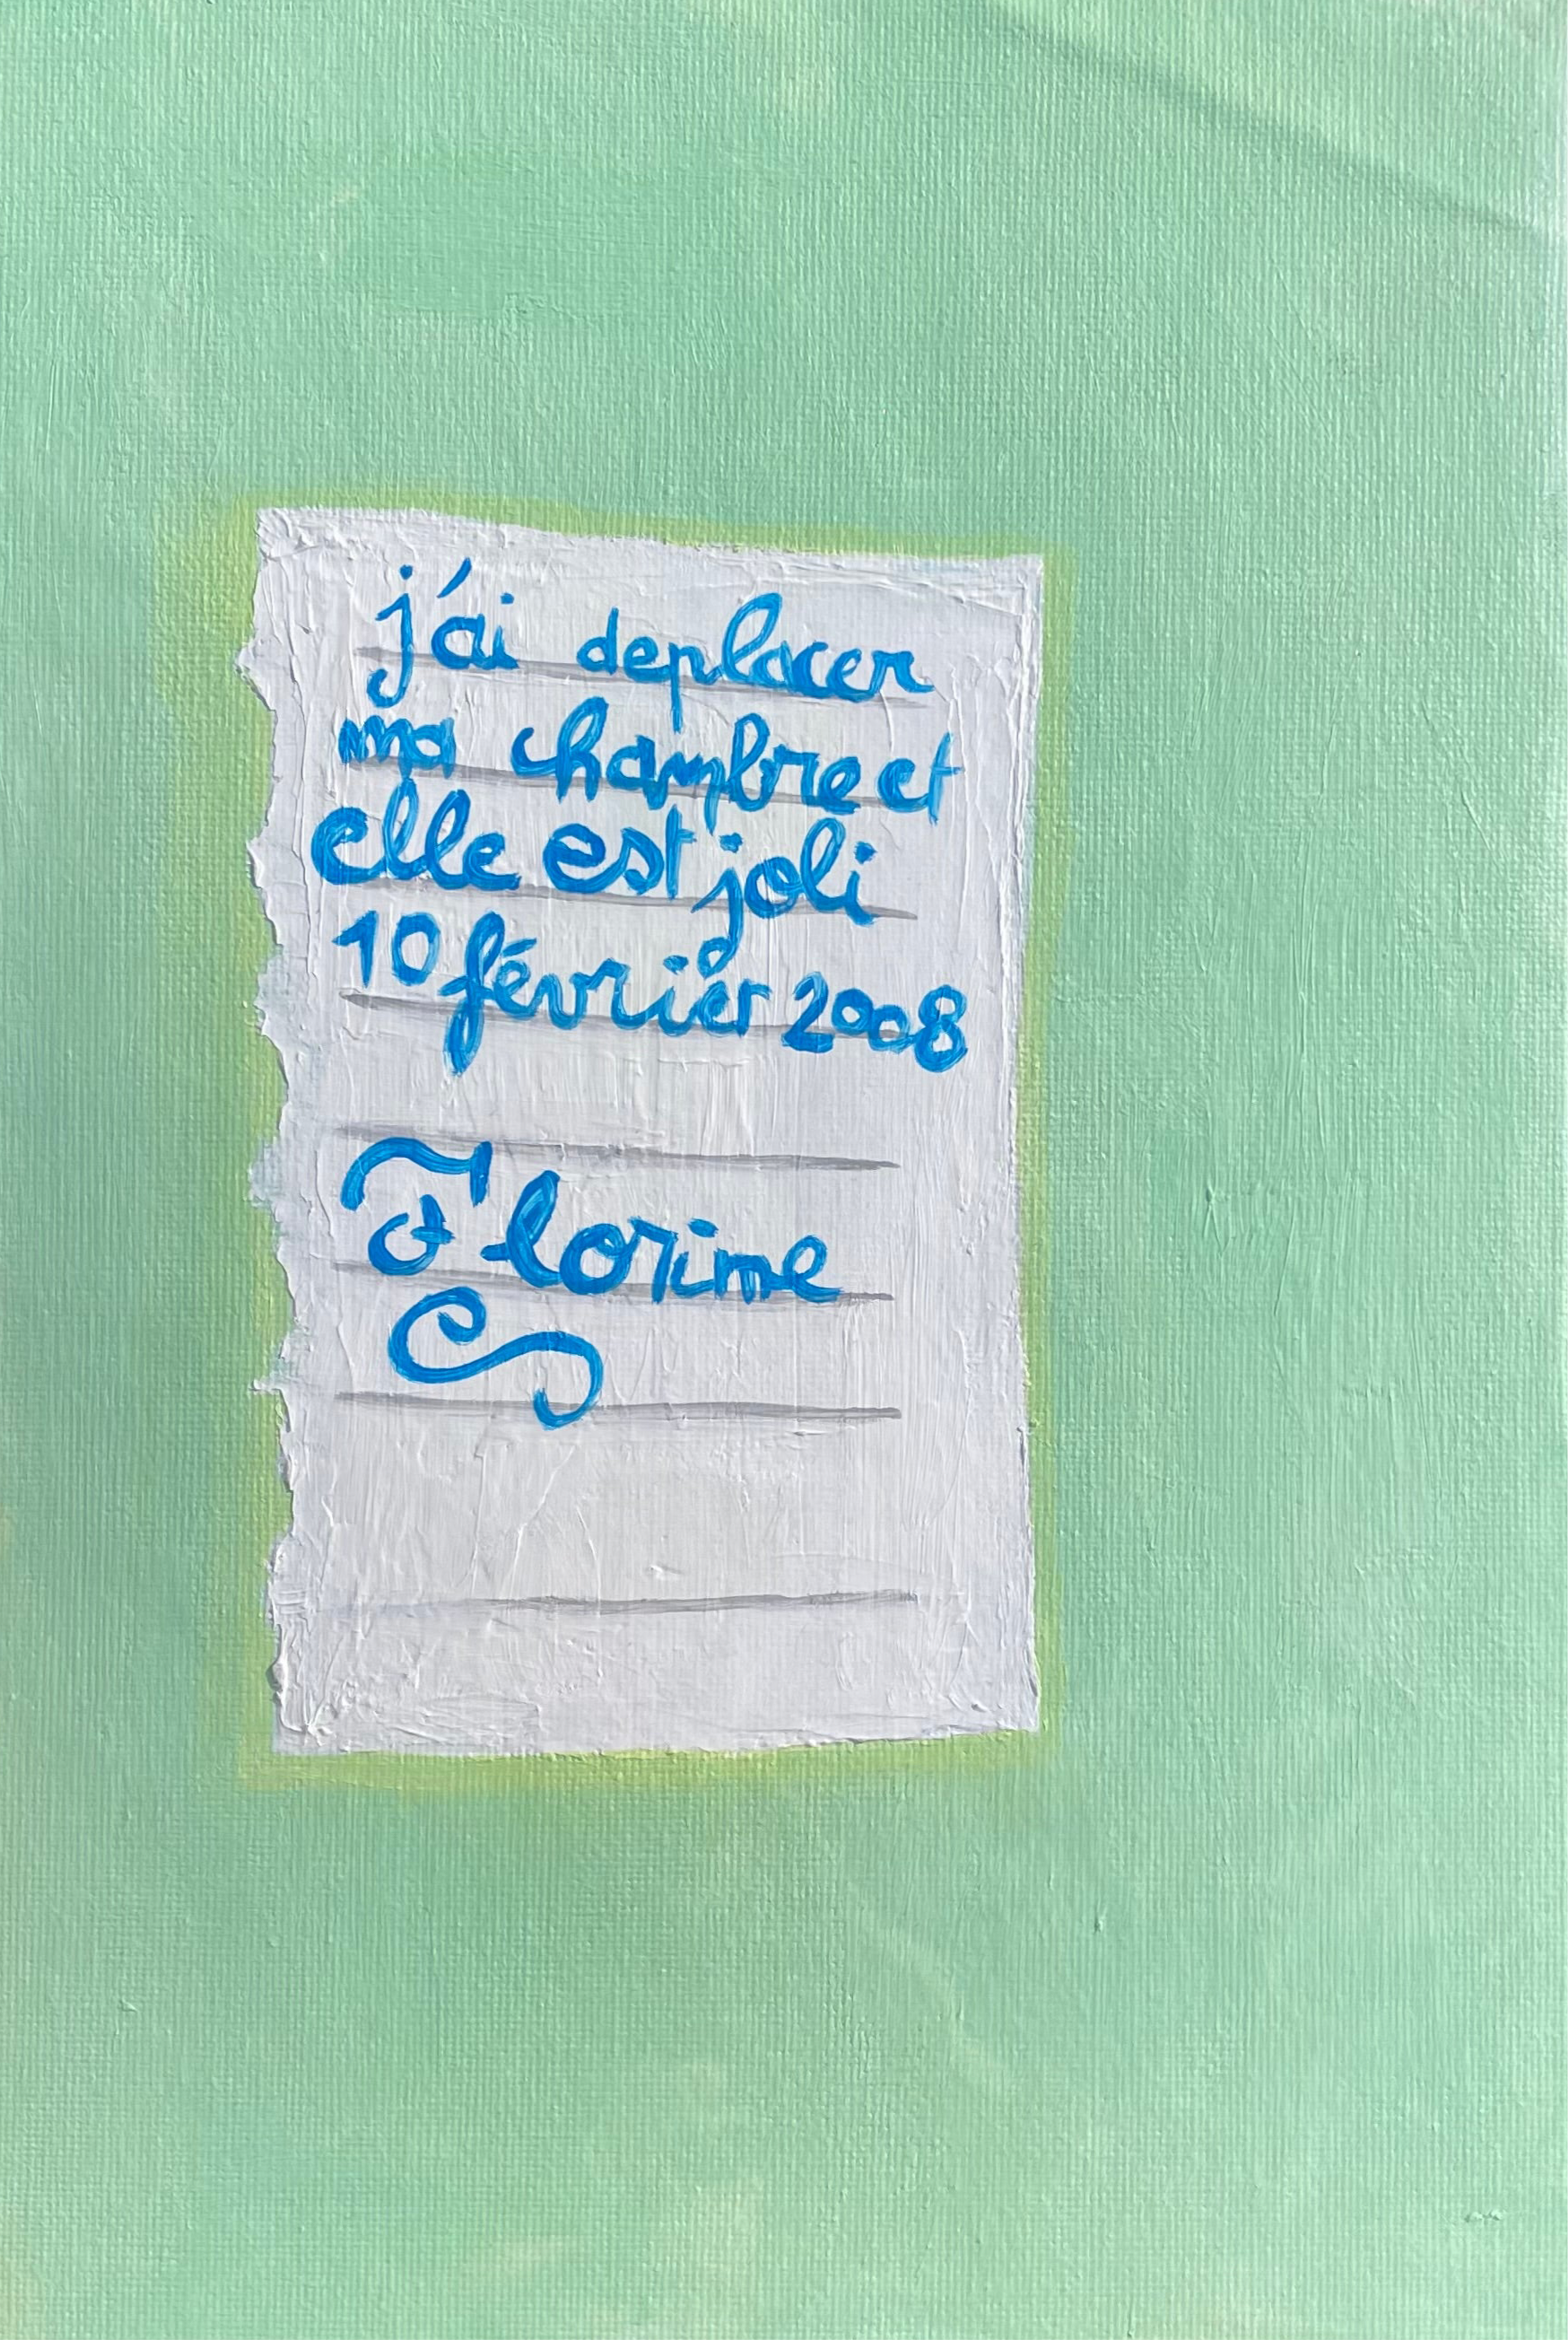 j'ai deplacer
ma chambre et
elle est joli
10 février 2008
Florine